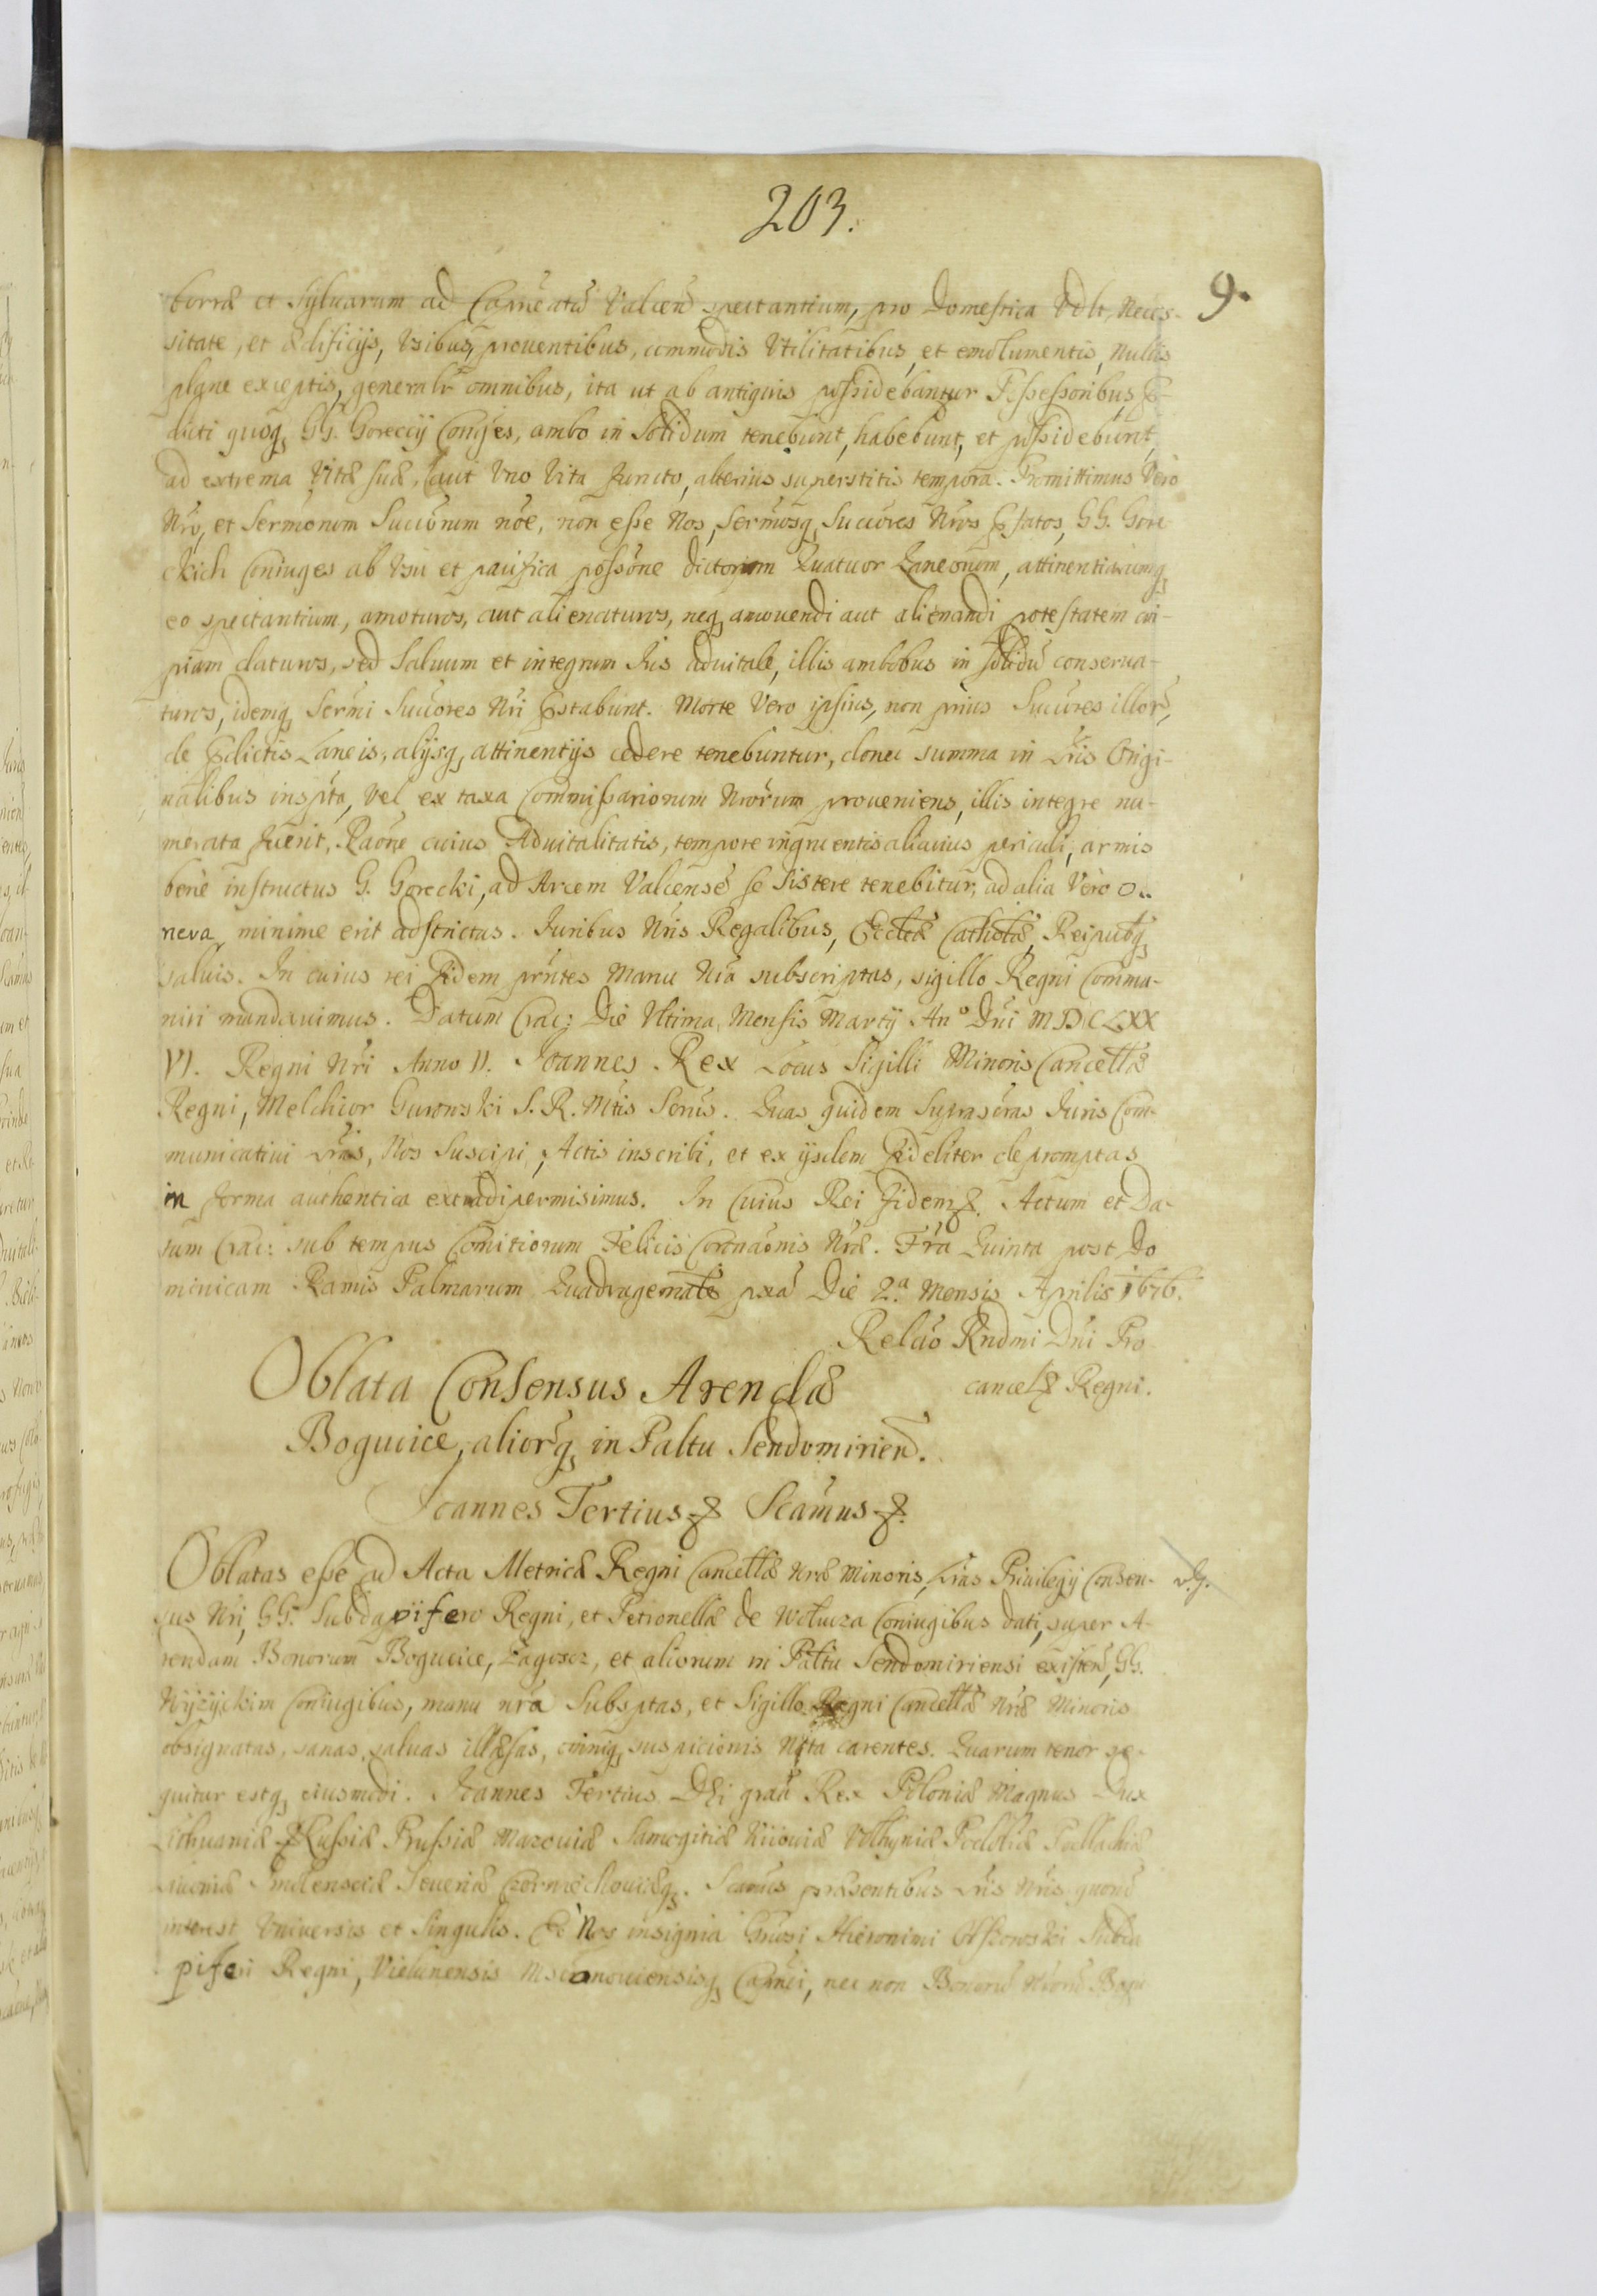 203.
9.
borræ et Sylvarum ad Capneatũ Valcen̄ spectantium, pro Domestica Vdlt, Neces-
sitate, et ædificijs, Vsibus, prouentibus, commodis Vtilitatibus, et emolumentis, Nullis
plane exceptis, generalr̄ omnibus, ita ut ab antiquis possidebantur Possessoribus,
dicti quoq, GG. Goreccÿ Conīges, ambo in Solidum tenebunt, habebunt, et possidebunt,
ad extrema Vitæ suæ, aut Vno Vita functo, alterius superstitis tempora. Promittimus Vero
Nro, et Sermonum Succōnum nōe, non esse Nos, Sermosq, Succōres Nros fatos, GG. Gore-
ckich Coniuges ab Vsu et pacifica possōne dictorum Quatuor Laneōnum, attinentiarumq,
eo spectantium, amoturos, aut alienaturos, neq, amouendi aut alienandi potestatem cui-
piam daturos, sed Saluum et integrum Ius aduitale, illis ambobus in solidū conserua-
turos, idemq, Sermi Succōres Nri stabunt. Morte Vero ipsius, non prius Succōres illorū,
de dictis Laneis, alijsq, attinentijs cedere tenebuntur, donec summa in Lris Origi-
nalibus inspta, Vel ex taxa Commissariorum Nrorum proueniens, illis integre nu-
merata fuerit, Raōne cuius Aduitalitatis, tempore ingruentis alicuius periculi, armis
bene instructus G. Gorecki, ad Arcem Valcensē se Sistere tenebitur, ad alia Vero o..
nera, minime erit adstrictus. Iuribus Nris Regalibus, Ecclæ Catholæ, Reipubq,
saluis. In cuius rei fidem pntes Manu Nra subscriptas, sigillo Regni Commu-
niri mandauimus. Datum Crac: Die Vltima, Mensis Martÿ Anº Dni MDCLXX
VI. Regni Nri Anno II. Joannes Rex Locus Sigilli Minoris Cancellæ
Regni, Melchior Gurowski S. R. Mtis Scrius. Quas quidem Suprascras Iuris Com-
municatiui Lras, Nos Suscipi, Actis inscribi, et ex ijsdem fideliter depromptas
in forma authentica extradi permisimus. In Cuius Rei fidem. Actum et Da-
tum Crac: sub tempus Comitiorum Felicis Coronaōnis Nræ. Fra Quinta post Do
minicam Ramis Palmarum Quadragenale pxā Die 2.ª Mensis Aprilis 1676.
Relāo Rndmi Dni Pro
cancel Regni.
Oblata Consensus Arendæ
Bogucice, aliorq, in Paltu Sendomirien̄.
Joannes Tertius Scamus
Oblatas esse ad Acta Metricæ Regni Cancellæ Nræ Minoris, Lras Priuilegÿ Consen-
sus Nri, GG. Subdapifero Regni, et Petronellæ de Coniugibus dati, super A-
rendam Bonorum Bogucice, Zagoscz, et aliorum in Paltu Sendomiriensi existen̄, GG.
Coniugibus, manu nra Subsptas, et Sigillo Regni Cancellæ Nræ Minoris
obsignatas, sanas, saluas illæsas, omniq, suspicionis Nota carentes. Quarum tenor se-
quitur estq, eiusmodi. Joannes Tertius Dei graā Rex Poloniæ Magnus Dux
Lithuaniæ Russiæ Prussiæ Mazouiæ Samogitiæ Kiiouiæ Volhyniæ Podoliæ Podlachiæ
Liuoniæ Smolensciæ Seueriæ Czernichouiæq,. Scamus præsentibus Lris Nris quorū
interest Vniuersis et Singulis. Nos insignia Gnosi Hieronimi Subda
piferi Regni, Vielunensis Capnei, nec non Bonorū Nrorū Bogu